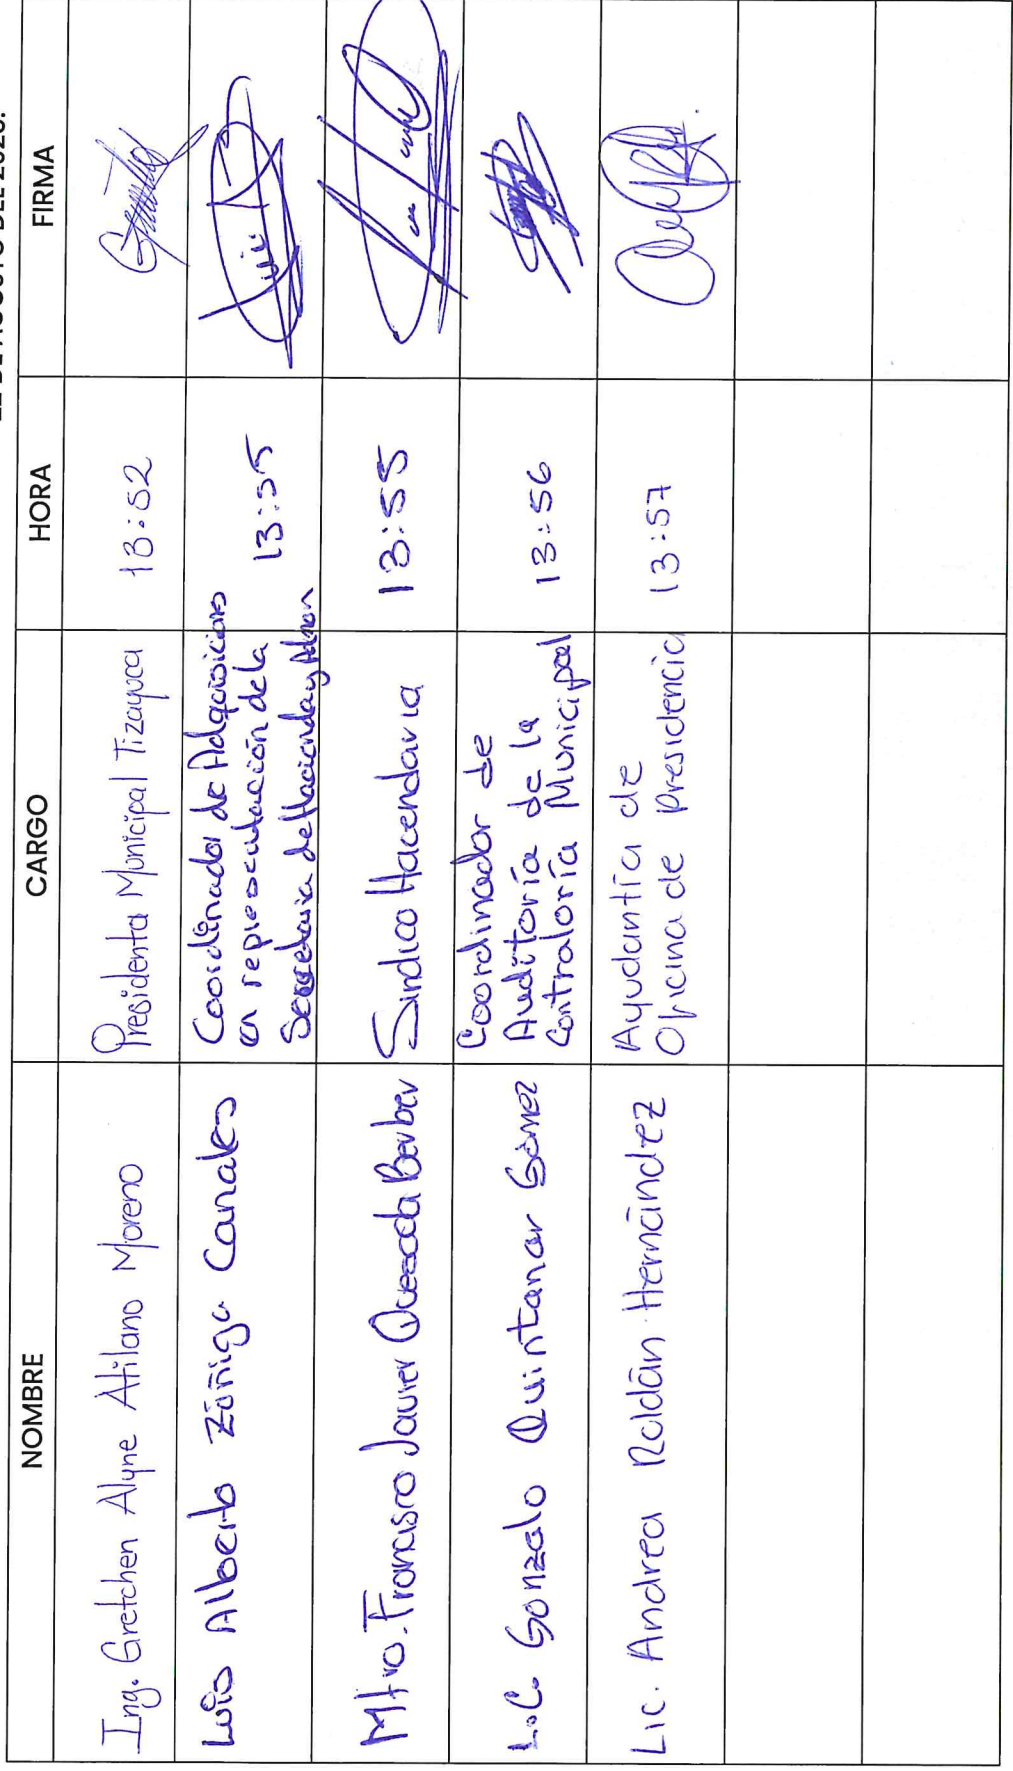 NOMBRE CARGO HORA FIRMA
Ing. Gretchen Alyne Atilano Moreno
Presidenta Municipal Tizayuca
13:52
Luis Alberto Zúñiga Canales
Coordinador de Adquisiciones
en representación de la
Secretaria de Hacienda y Admon
13:55
Mtro. Francisco Javier Quesada Berber
Sindico Hacendario
13:55
L.C. Gonzalo Quintanar Gómez
Coordinador de
Auditoría de la
Contraloría Municipal
13:56
Lic. Andrea Roldán Hernández
Ayudantía de
Oficina de Presidencia
13:57